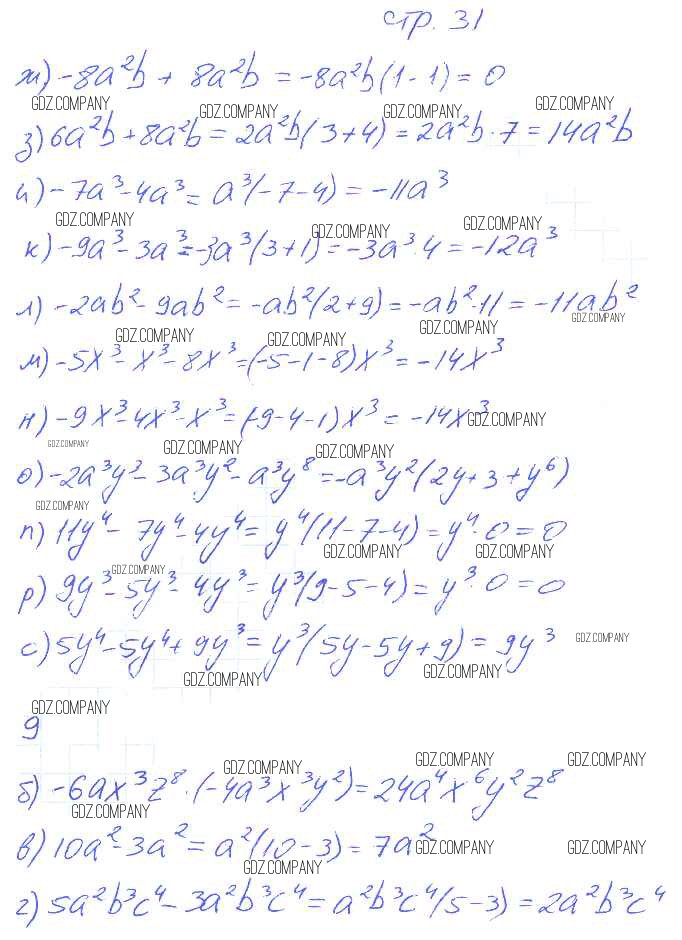 стр. 31
ж) -8a²b + 8a²b = -8a²b(1-1) = 0
GDZ.COMPANY GDZ.COMPANY GDZ.COMPANY GDZ.COMPANY
з) 6a²b + 8a²b = 2a²b(3+4) = 2a²b·7 = 14a²b
и) -7a³-4a³ = a³(-7-4) = -11a³
GDZ.COMPANY GDZ.COMPANY GDZ.COMPANY
к) -9a³-3a³ = -3a³(3+1) = -3a³·4 = -12a³
л) -2ab²-9ab² = -ab²(2+9) = -ab²·11 = -11ab²
GDZ.COMPANY GDZ.COMPANY GDZ.COMPANY GDZ.COMPANY
м) -5x³-x³-8x³ = (-5-1-8)x³ = -14x³
н) -9x³-4x³-x³ = (-9-4-1)x³ = -14x³ GDZ.COMPANY
GDZ.COMPANY GDZ.COMPANY GDZ.COMPANY
о) -2a³y³-3a³y²-a³y⁸ = -a³y²(2y+3+y⁶)
GDZ.COMPANY
п) 11y⁴-7y⁴-4y⁴ = y⁴(11-7-4) = y⁴·0 = 0
GDZ.COMPANY GDZ.COMPANY GDZ.COMPANY
р) 9y³-5y³-4y³ = y³(9-5-4) = y³·0 = 0
с) 5y⁴-5y⁴+9y³ = y³(5y-5y+9) = 9y³ GDZ.COMPANY
GDZ.COMPANY GDZ.COMPANY
GDZ.COMPANY
9
GDZ.COMPANY GDZ.COMPANY GDZ.COMPANY
б) -6ax³z⁸·(-4a³x³y²) = 24a⁴x⁶y²z⁸
GDZ.COMPANY
в) 10a²-3a² = a²(10-3) = 7a² GDZ.COMPANY GDZ.COMPANY
GDZ.COMPANY
г) 5a²b³c⁴-3a²b³c⁴ = a²b³c⁴(5-3) = 2a²b³c⁴